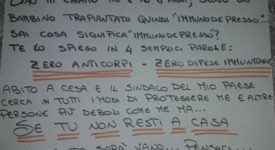 BAMBINO TRAPIANTATO QUINDI "IMMUNODEPRESSO".
SAI COSA SIGNIFICA "IMMUNODEPRESSO"?
TE LO SPIEGO IN 4 SEMPLICI PAROLE:
ZERO ANTICORPI - ZERO DIFESE IMMUNITARIE
ABITO A CESA E IL SINDACO DEL MIO PAESE
CERCA IN TUTTI I MODI DI PROTEGGERE ME E ALTRE
PERSONE PIÙ DEBOLI COME ME MA...
SE TU NON RESTI A CASA
SARÀ VANO... PENSACI